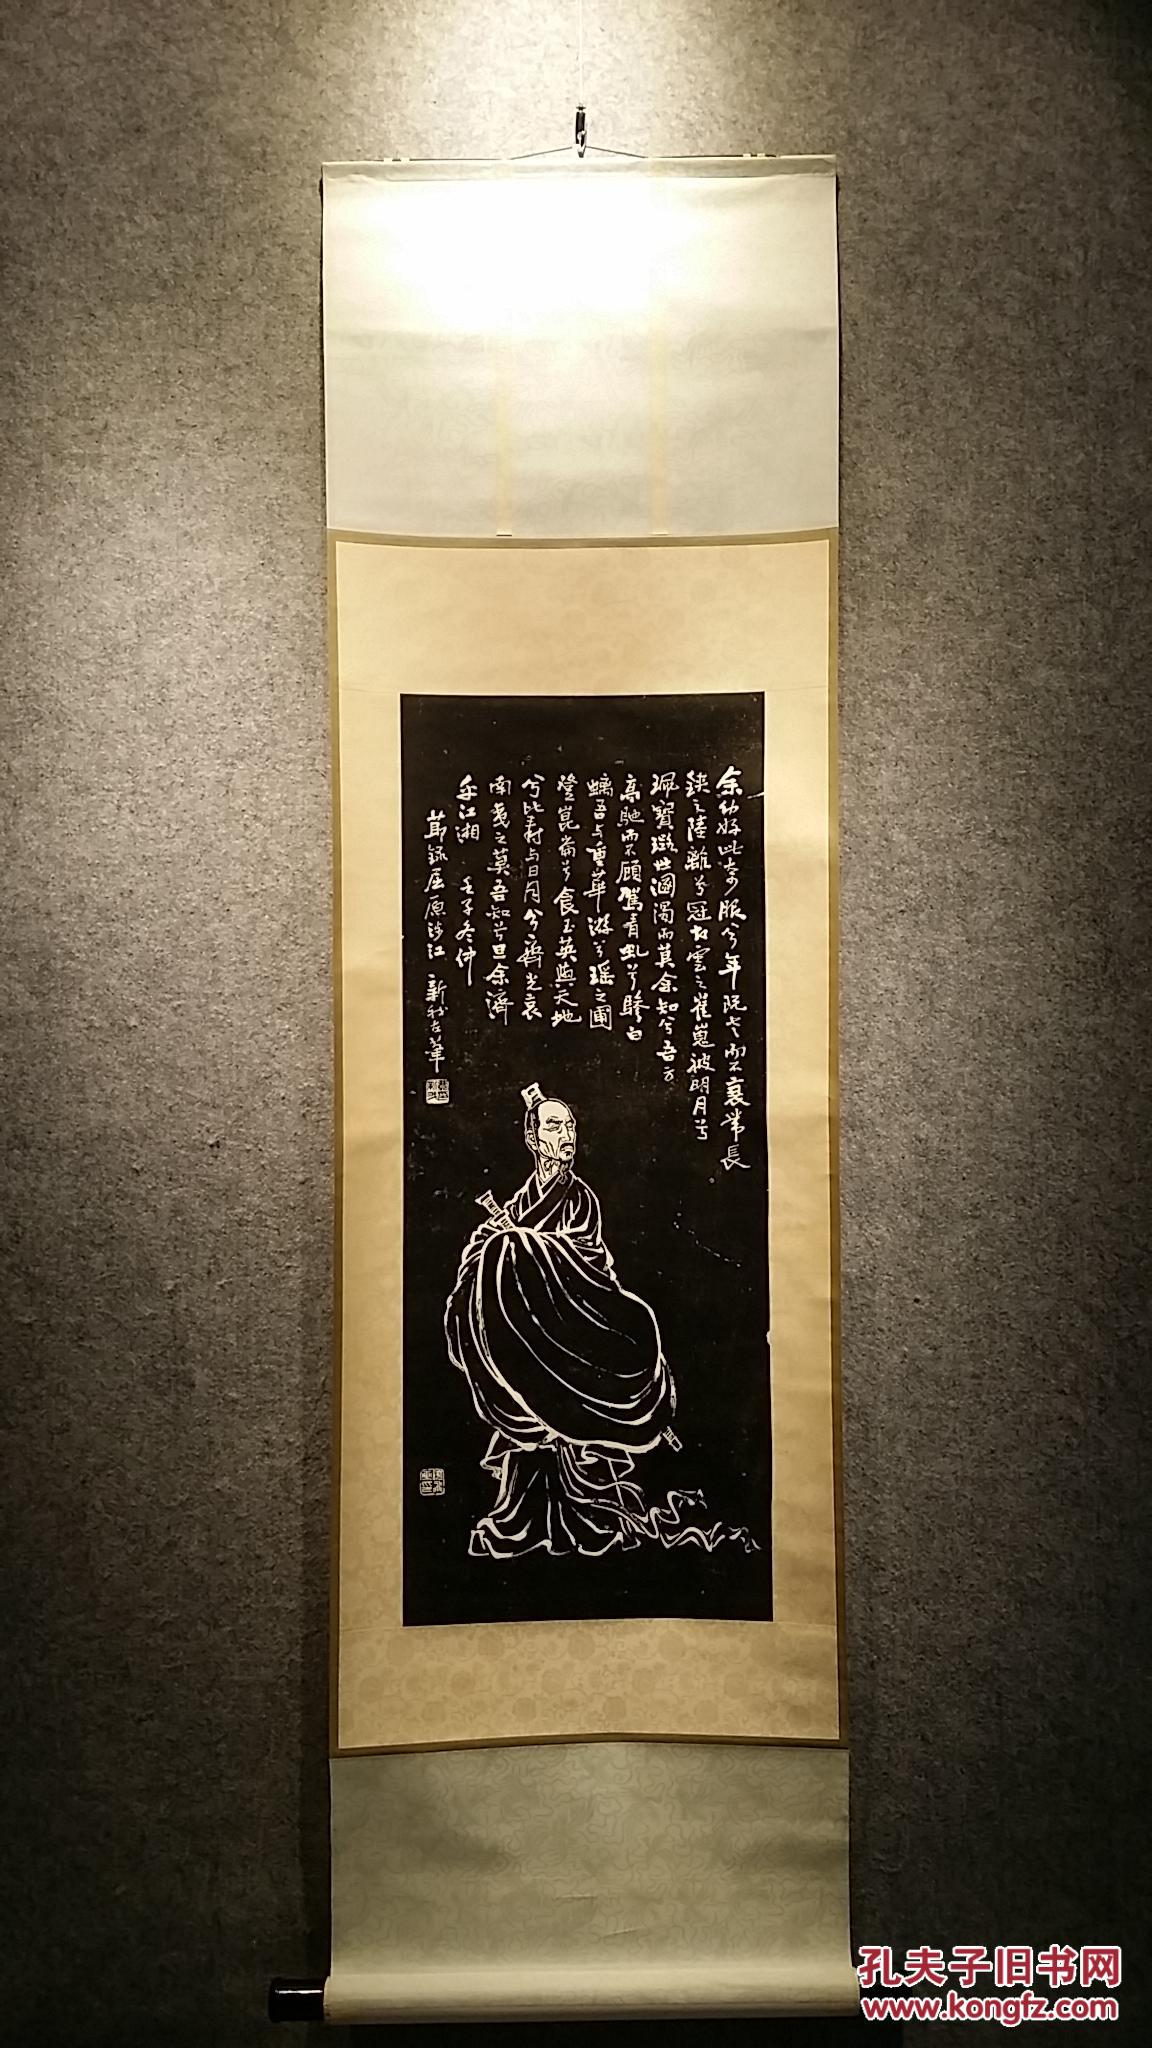 余幼好此奇服兮年既老而不衰带長
鋏之陸離兮冠切雲之崔嵬被明月兮
珮寶璐世溷濁而莫余知兮吾方
高馳而不顧駕青虬兮驂白
螭吾与重華游兮瑶之圃
登崑崙兮食玉英與天地
兮比壽与日月兮齊光哀
南夷之莫吾知兮旦余濟
乎江湘 壬子冬仲
節録屈原涉江 新秋左筆
孔夫子旧书网
www.kongfz.com